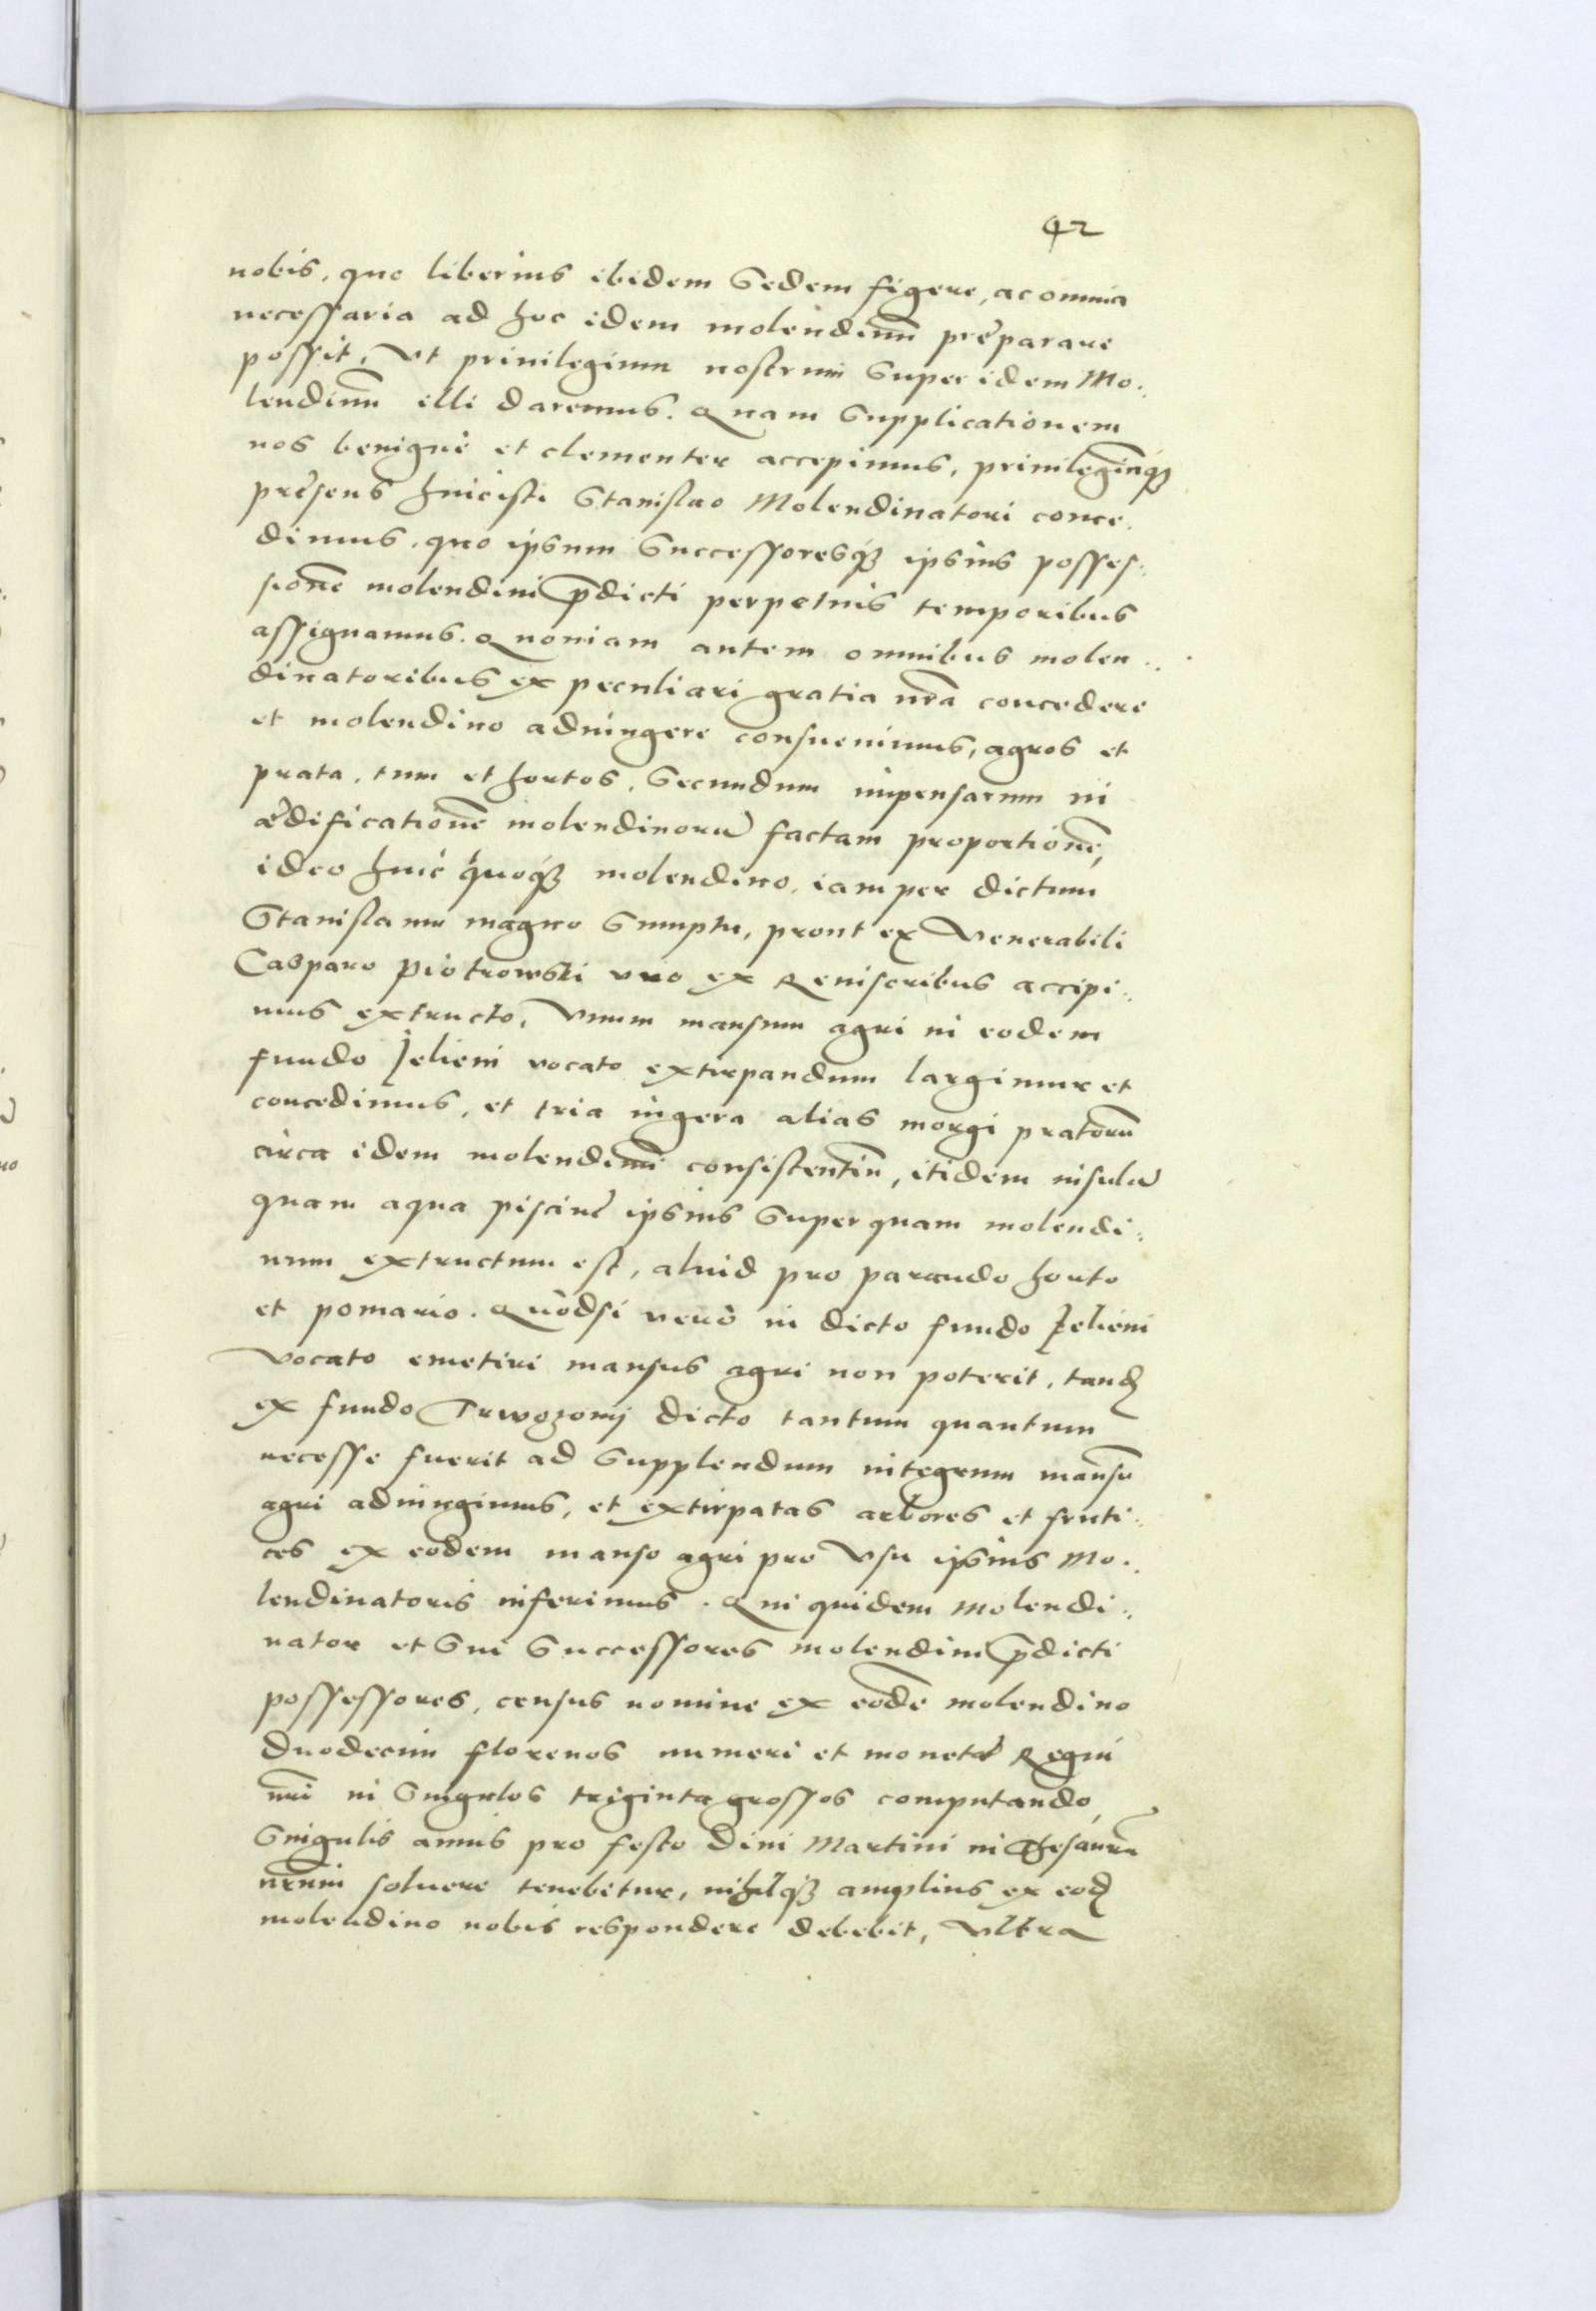 42
nobis, quo liberius ibidem sedem figere, ac omnia
necessaria ad hoc idem molendinū prę̀parare
possit, Vt priuilegium nostrum super idem Mo:
lendinū illi daremus. Quam supplicationem
nos benignè et clementer accepimus, priuilegiūq3
prę̀sens huic isti Stanislao Molendinatori conce:
dimus, quo ipsum Successoresq3 ipsius posses:
sionē molendini p̄dicti perpetuis temporibus
assignamus. Quoniam autem omnibus molen:
dinatoribus ex peculiari gratia nr̄a concedere
et molendino adiungere consueuimus, agros et
prata, tum et hortos, secundum impensarum in
ædificationē molendinorū factam proportionē,
ideo huic quoq3 molendino, iam per dictum
Stanislaum magno sumptu, prout ex Venerabili
Casparo Piotrowski vno ex Reuisoribus accipi:
mus extructo, Vnum mansum agri in eodem
fundo Jelieni vocato extirpandum largimur et
concedimus, et tria iugera alias morgi pratorū
circa idem molendinū consistentiū, itidem insulā
quam aqua piscinę ipsius super quam molendi:
num extructum est, aluid pro parando horto
et pomario. Quòdsi verò in dicto fundo Jelieni
Vocato emetiri mansus agri non poterit, tandē
ex fundo Trwozonij dicto tantum quantum
necesse fuerit ad supplendum integrum mansū
agri adiungimus, et extirpatas arbores et fruti:
ces ex eodem manso agri pro Vsu ipsius Mo:
lendinatoris inferimus. Qui quidem Molendi:
nator et sui Successores molendini p̄dicti
possessores, census nomine ex eodē molendino
duodecim florenos numeri et monetę Regni
nr̄i in singulos triginta grossos computando,
Singulis annis pro festo Diui Martini in Thesaurū
nr̄um soluere tenebitur, nihilq3 amplius ex eodē
molendino nobis respondere debebit, Vltra